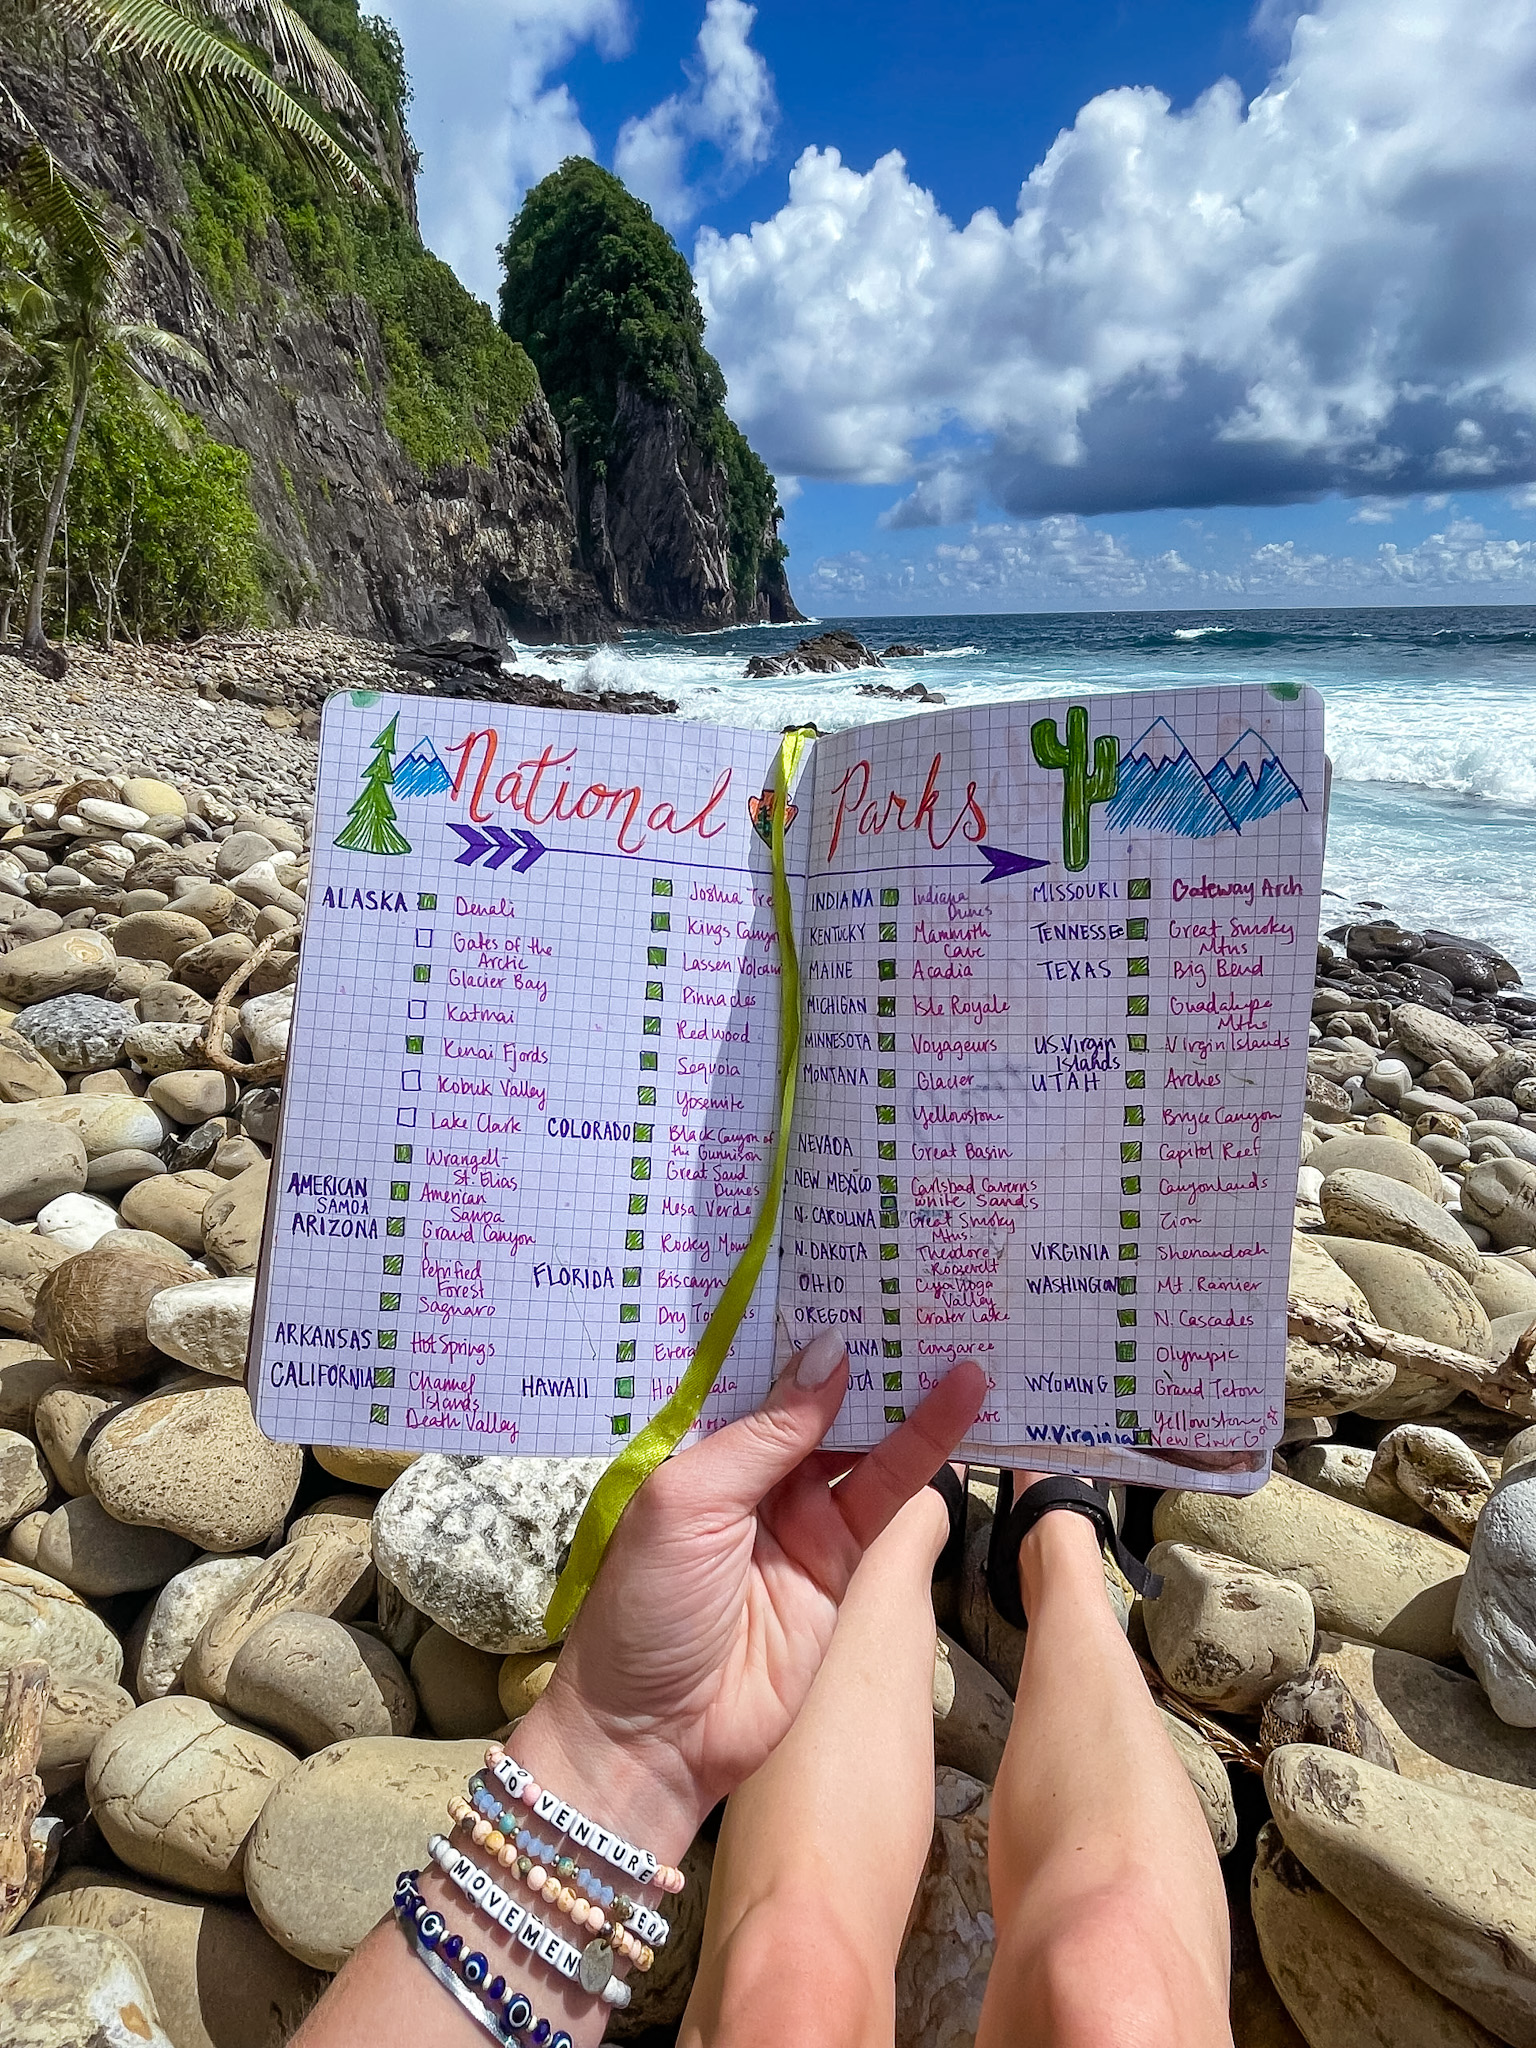 National Parks
ALASKA Denali
Gates of the
Arctic
Glacier Bay
Katmai
Kenai Fjords
Kobuk Valley
Lake Clark
Wrangell-
St. Elias
AMERICAN
SAMOA
American
Samoa
ARIZONA Grand Canyon
Petrified
Forest
Saguaro
ARKANSAS Hot Springs
CALIFORNIA Channel
Islands
Death Valley
Joshua Tree
Kings Canyon
Lassen Volcan
Pinnacles
Redwood
Sequoia
Yosemite
COLORADO Black Canyon of
the Gunnison
Great Sand
Dunes
Mesa Verde
Rocky Moun
FLORIDA Biscayn
Dry
HAWAII
INDIANA Indiana
Dunes
KENTUCKY Mammoth
Cave
MAINE Acadia
MICHIGAN Isle Royale
MINNESOTA Voyageurs
MONTANA Glacier
Yellowstone
NEVADA Great Basin
NEW MEXICO Carlsbad Caverns
White Sands
N. CAROLINA Great Smoky
Mtns.
N. DAKOTA Theodore
Roosevelt
OHIO Cuyahoga
Valley
OREGON Crater Lake
Congaree
MISSOURI Gateway Arch
TENNESSEE Great Smoky
Mtns
TEXAS Big Bend
Guadalupe
Mtns
U.S. Virgin
Islands
Virgin Islands
UTAH Arches
Bryce Canyon
Capitol Reef
Canyonlands
Zion
VIRGINIA Shenandoah
WASHINGTON Mt. Rainier
N. Cascades
Olympic
WYOMING Grand Teton
Yellowstone
W. Virginia New River Gorge
TO VENTURE
MOVEMEN